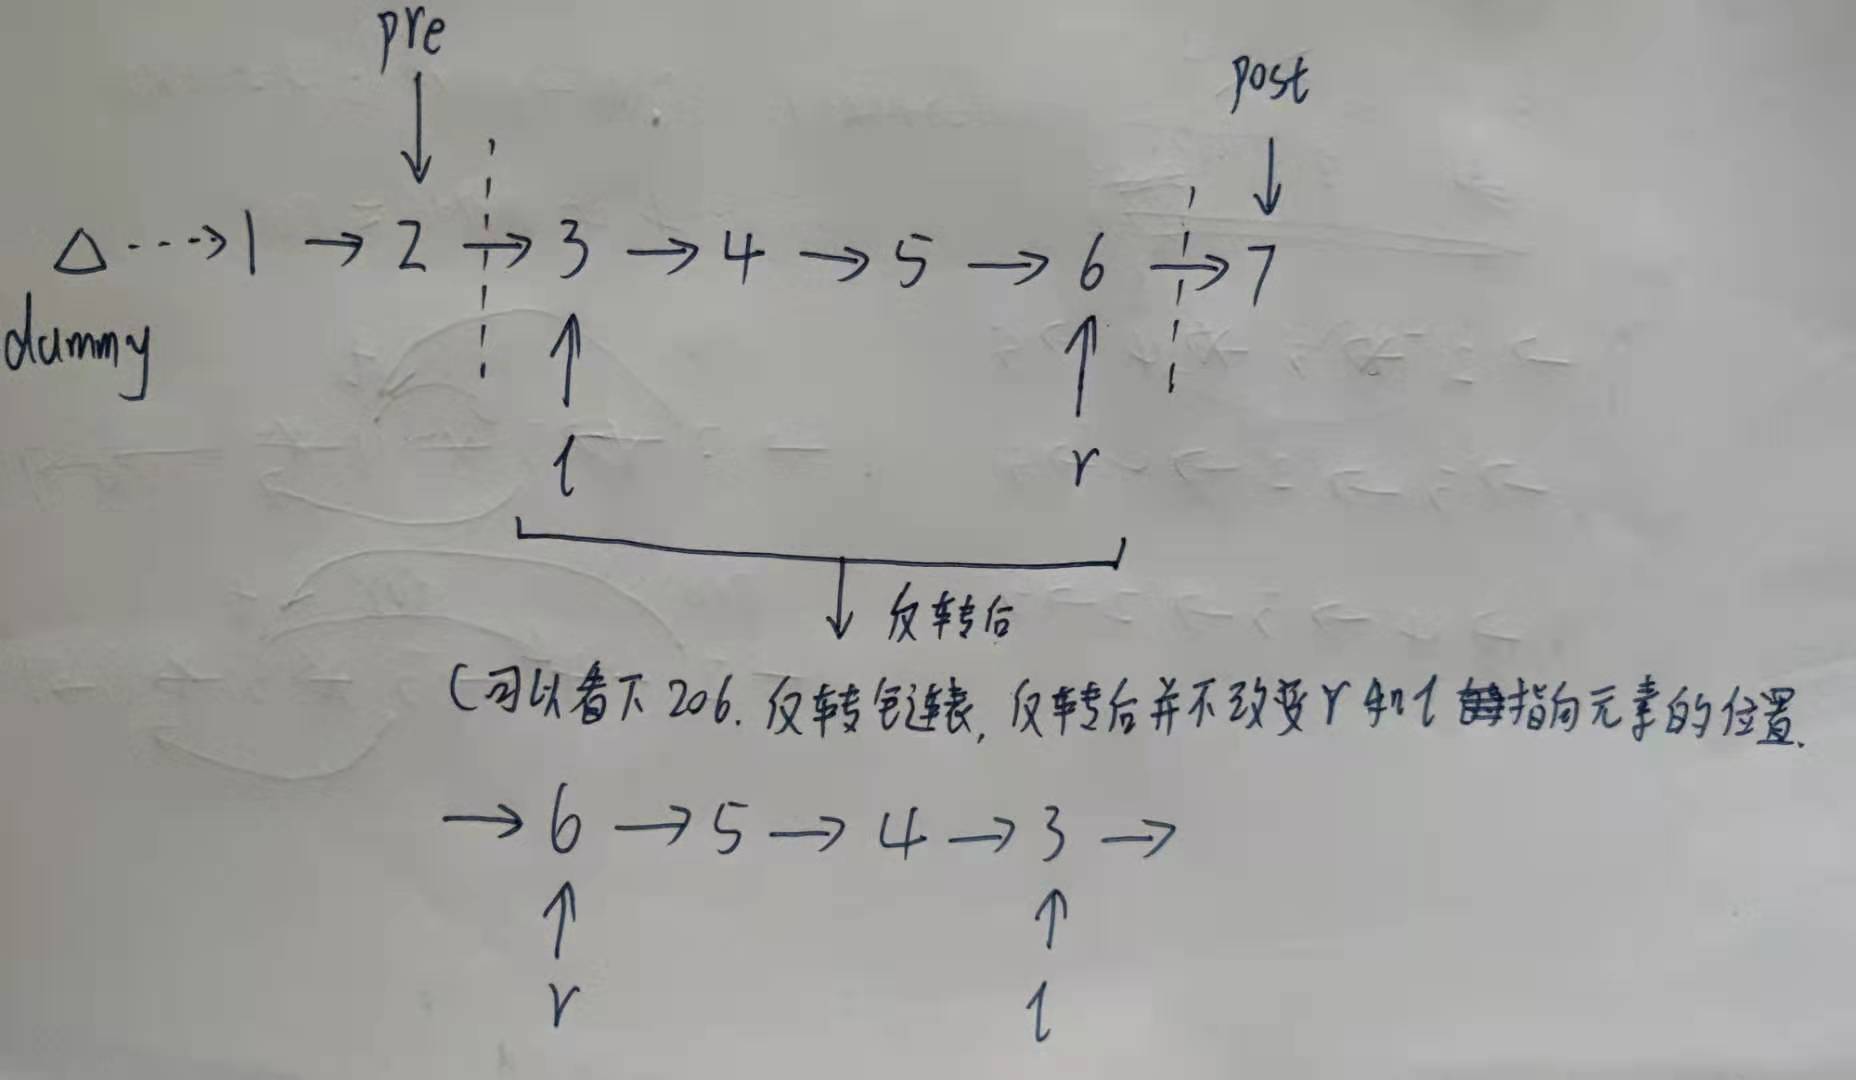 pre
post
△ ---> 1 → 2 → 3 → 4 → 5 → 6 → 7
dummy
l r
反转后
(可以看下206.反转链表,反转后并不改变r和l指向元素的位置.
→ 6 → 5 → 4 → 3 →
r l